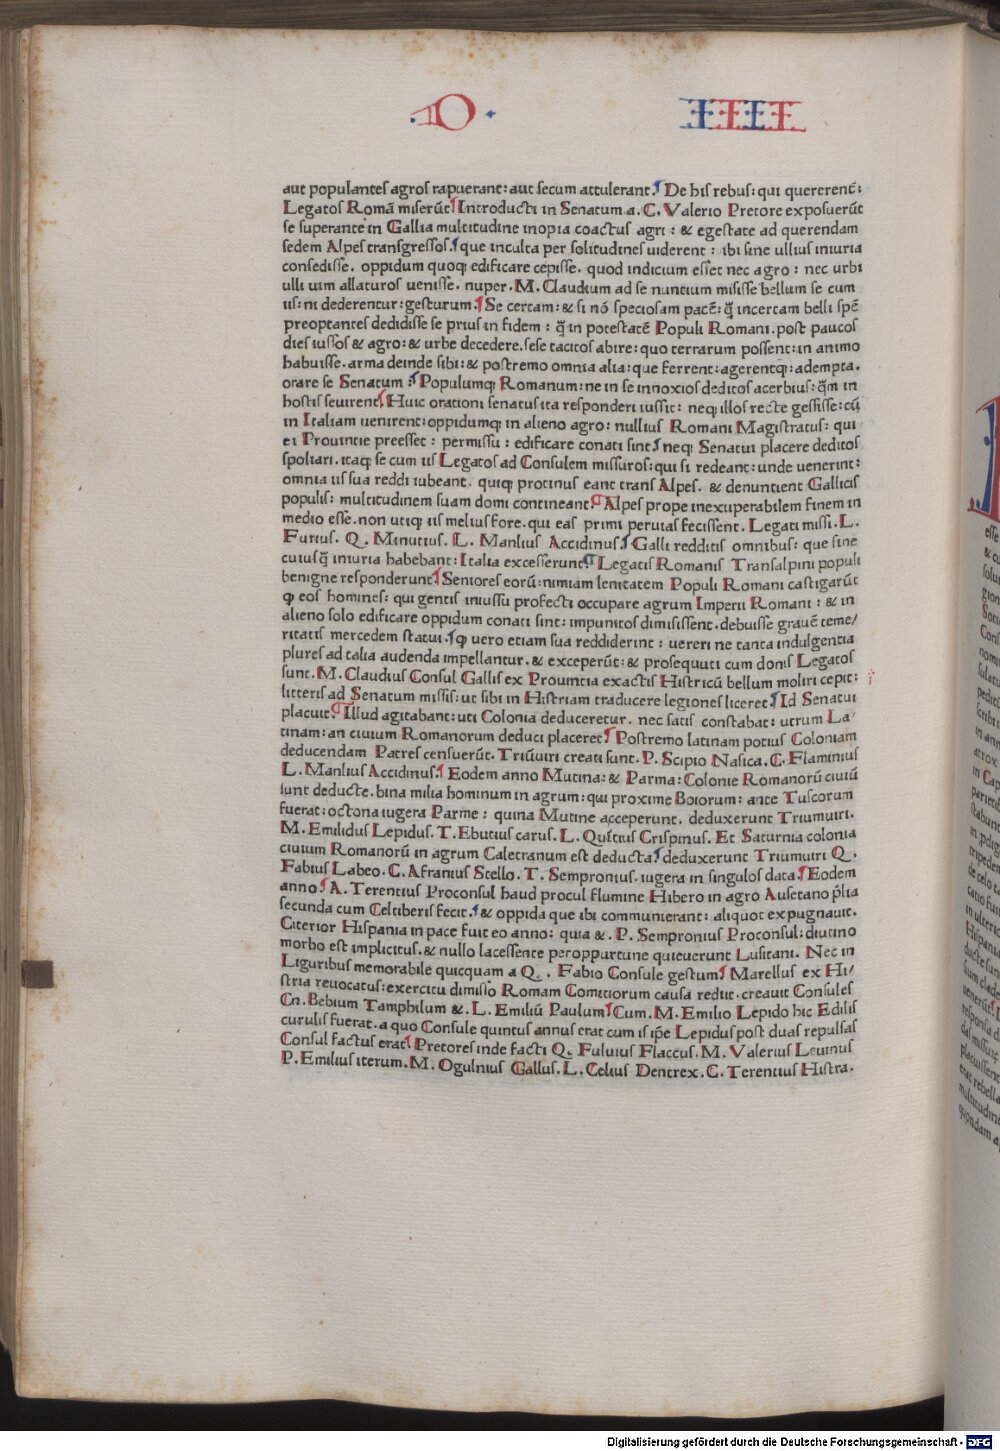 D. IIII
aut populantes agros rapuerant: aut secum attulerant. De his rebus: qui quererent̃:
Legatos Romã miserũt Introducti in Senatum a. C. Valerio Pretore exposuerũt
se superante in Gallia multitudine inopia coactus agri: & egestate ad querendam
sedem Alpes transgressos. que inculta per solitudines uiderent: ibi sine ullius iniuria
consedisse. oppidum quoq; edificare cepisse. quod indicium esset nec agro: nec urbi
ulli uim allaturos uenisse. nuper. M. Claudium ad se nuncium misisse bellum se cum
iis: ni dederentur: gesturum. Se certam: & si nõ speciosam pacẽ: q̃ incertam belli spẽ
preoptantes dedidisse se prius in fidem: q̃ in potestatẽ Populi Romani. post paucos
dies iussos & agro: & urbe decedere. sese tacitos abire: quo terrarum possent: in animo
habuisse. arma deinde sibi: & postremo omnia alia: que ferrent: agerentq; adempta.
orare se Senatum: Populumq; Romanum: ne in se innoxios deditos acerbius: q̃m in
hostis seuirent Huic orationi senatus ita responderi iussit: neq; illos recte gessisse: cũ
in Italiam uenirent: oppidumq; in alieno agro: nullius Romani Magistratus: qui
ei Prouintie preesset: permissu: edificare conati sint neq; Senatui placere deditos
spoliari. itaq; se cum iis Legatos ad Consulem missuros: qui si redeant: unde uenerint:
omnia iis sua reddi iubeant. quiq; protinus eant trans Alpes. & denuntient Gallicis
populis: multitudinem suam domi contineant. Alpes prope inexuperabilem finem in
medio esse. non utiq; iis melius fore. qui eas primi peruias fecissent. Legati missi. L.
Furius. Q. Minutius. L. Manlius Accidinus. Galli redditis omnibus: que sine
cuiusq̃ iniuria habebant: Italia excesserunt. Legatis Romanis Transalpini populi
benigne responderunt Seniores eorũ: nimiam lenitatem Populi Romani castigarũt
ꝙ eos homines: qui gentis iniussu profecti occupare agrum Imperii Romani: & in
alieno solo edificare oppidum conati sint: impunitos dimisissent. debuisse grauẽ teme/
ritatis mercedem statui. ꝙ uero etiam sua reddiderint: uereri ne tanta indulgentia
plures ad talia audenda impellantur. & exceperũt: & prosequuti cum donis Legatos
sunt. M. Claudius Consul Gallis ex Prouintia exactis Histricũ bellum moliri cepit:
litteris ad Senatum missis: ut sibi in Histriam traducere legiones liceret. Id Senatui
placuit. Illud agitabant: uti Colonia deduceretur. nec satis constabat: utrum La/
tinam: an ciuium Romanorum deduci placeret Postremo latinam potius Coloniam
deducendam Patres censuerũt. Triũuiri creati sunt. P. Scipio Nasica. C. Flaminius
L. Manlius Accidinus. Eodem anno Mutina: & Parma: Colonie Romanorũ ciuiũ
sunt deducte. bina milia hominum in agrum: qui proxime Boiorum: ante Tuscorum
fuerat: octona iugera Parme: quina Mutine acceperunt. deduxerunt Triumuiri.
M. Emilidus Lepidus. T. Ebutius carus. L. Quĩctius Crispinus. Et Saturnia colonia
ciuium Romanorũ in agrum Caletranum est deducta. deduxerunt Triumuiri Q.
Fabius Labeo. C. Afranius Stello. T. Sempronius. iugera in singulos data. Eodem
anno A. Terentius Proconsul haud procul flumine Hibero in agro Ausetano p̃lia
secunda cum Celtiberis fecit. & oppida que ibi communierant: aliquot expugnauit.
Citerior Hispania in pace fuit eo anno: quia &. P. Sempronius Proconsul: diutino
morbo est implicitus. & nullo lacessente peroppurtune quieuerunt Lusitani. Nec in
Liguribus memorabile quicquam a Q. Fabio Consule gestum Marellus ex Hi/
stria reuocatus: exercitu dimisso Romam Comitiorum causa rediit. creauit Consules
Cn. Bebium Tamphilum &. L. Emiliũ Paulum Cum. M. Emilio Lepido hic Edilis
curulis fuerat. a quo Consule quintus annus erat cum is ip̃e Lepidus post duas repulsas
Consul factus erat Pretores inde facti Q. Fuluius Flaccus. M. Valerius Leuinus
P. Emilius iterum. M. Ogulnius Gallus. L. Celius Dentrex. C. Terentius Histra.
Digitalisierung gefördert durch die Deutsche Forschungsgemeinschaft - DFG